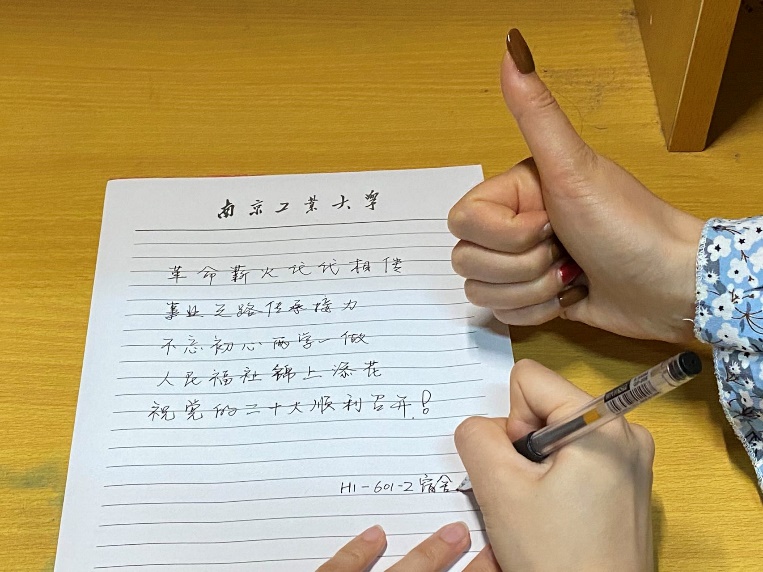 南京工业大学
革命薪火代代相传
事业之路传承接力
不忘初心两学一做
人民福祉锦上添花
祝党的二十大顺利召开!
H1-601-2宿舍